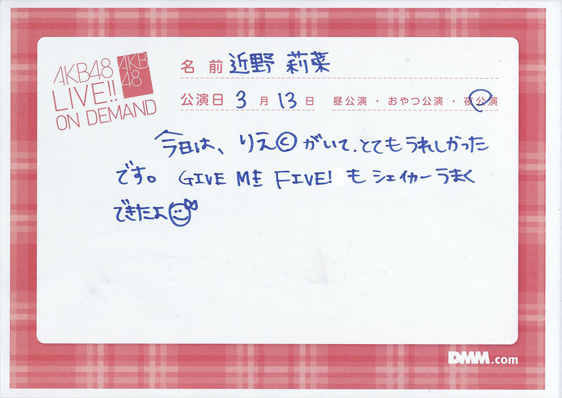 AKB48
LIVE!!
ON DEMAND
AKB
48
名 前 近野 莉菜
公演日 3 月 13 日 昼公演・おやつ公演・夜公演
今日は、りえ©がいて、とてもうれしかった
です。 GIVE ME FIVE! も シェイカーうまく
できたよ
DMM.com